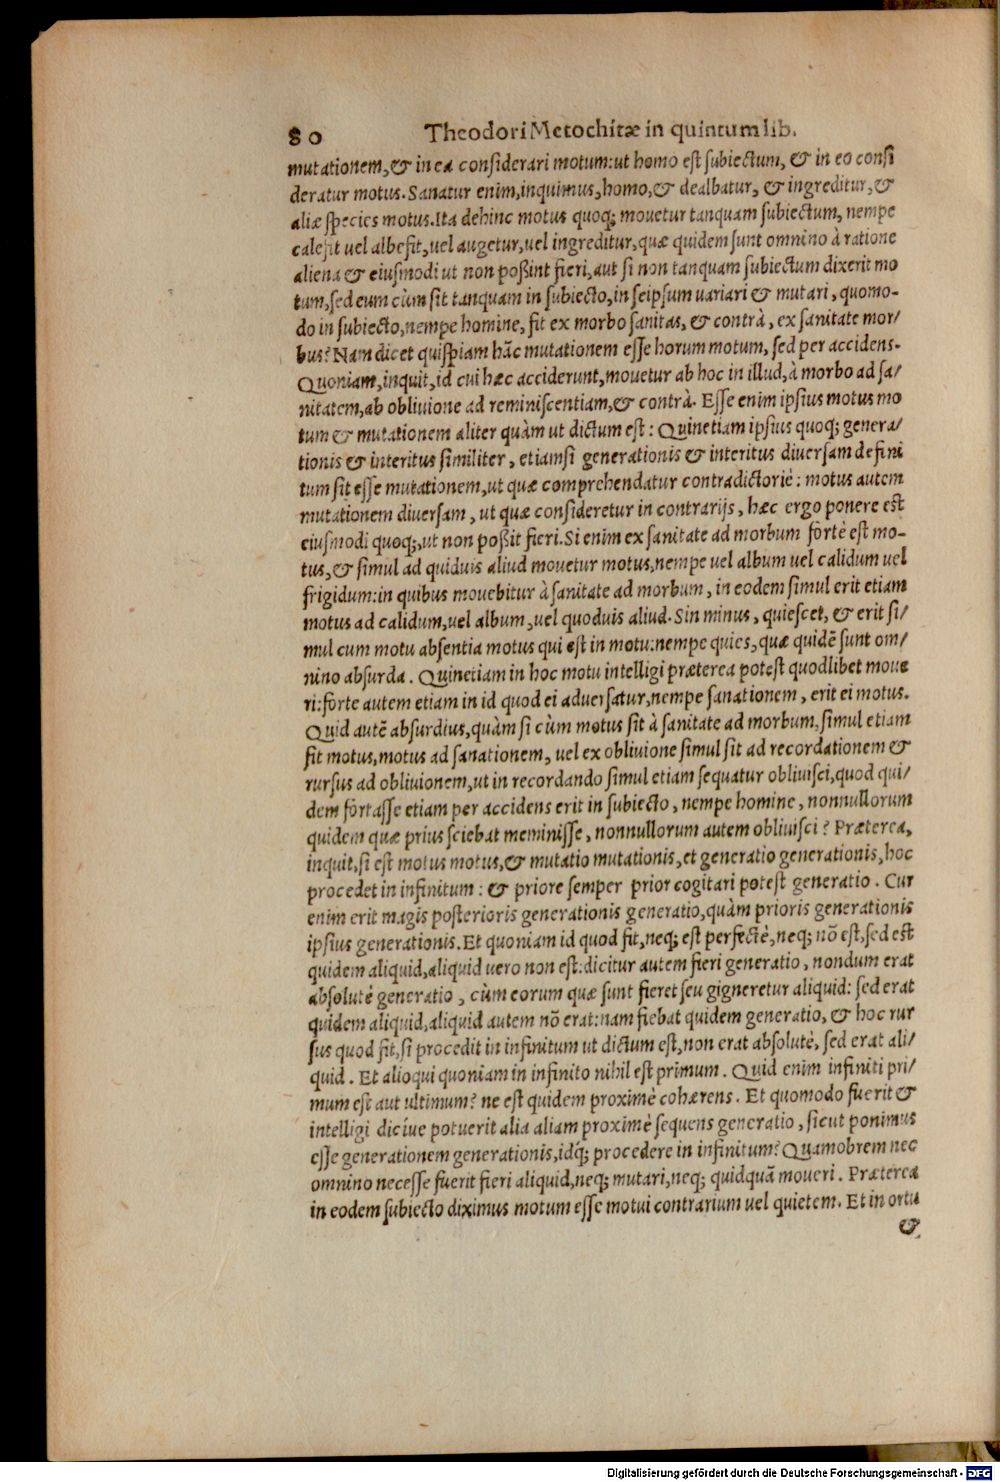 80 Theodori Metochitæ in quintum lib.
mutationem,& in ea considerari motum:ut homo est subiectum, & in eo consi
deratur motus.Sanatur enim,inquimus,homo,& dealbatur, & ingreditur,&
aliæ species motus.Ita dehinc motus quoq; mouetur tanquam subiectum, nempe
calefit uel albefit,uel augetur,uel ingreditur,quæ quidem sunt omnino à ratione
aliena & eiusmodi ut non poßint fieri,aut si non tanquam subiectum dixerit mo
tum,sed eum cùm sit tanquam in subiecto,in seipsum uariari & mutari, quomo-
do in subiecto,nempe homine, fit ex morbo sanitas, & contrà, ex sanitate mor/
bus? Nam dicet quispiam hãc mutationem esse horum motum, sed per accidens.
Quoniam,inquit,id cui hæc acciderunt,mouetur ab hoc in illud,à morbo ad sa/
nitatem,ab obliuione ad reminiscentiam,& contrà. Esse enim ipsius motus mo
tum & mutationem aliter quàm ut dictum est: Quinetiam ipsius quoq; genera/
tionis & interitus similiter, etiamsi generationis & interitus diuersam defini
tum sit esse mutationem,ut quæ comprehendatur contradictoriè: motus autem
mutationem diuersam, ut quæ consideretur in contrarijs, hæc ergo ponere est
eiusmodi quoq;,ut non poßit fieri.Si enim ex sanitate ad morbum fortè est mo-
tus,& simul ad quiduis aliud mouetur motus,nempe uel album uel calidum uel
frigidum:in quibus mouebitur à sanitate ad morbum, in eodem simul erit etiam
motus ad calidum,uel album,uel quoduis aliud. Sin minus, quiescet, & erit si/
mul cum motu absentia motus qui est in motu:nempe quies,quæ quidẽ sunt om/
nino absurda. Quinetiam in hoc motu intelligi præterea potest quodlibet moue
ri:forte autem etiam in id quod ei aduersatur,nempe sanationem, erit ei motus.
Quid autẽ absurdius,quàm si cùm motus sit à sanitate ad morbum,simul etiam
fit motus,motus ad sanationem, uel ex obliuione simul sit ad recordationem &
rursus ad obliuionem,ut in recordando simul etiam sequatur obliuisci,quod qui/
dem fortasse etiam per accidens erit in subiecto, nempe homine, nonnullorum
quidem quæ prius sciebat meminisse, nonnullorum autem obliuisci? Præterea,
inquit,si est motus motus,& mutatio mutationis,et generatio generationis,hoc
procedet in infinitum: & priore semper prior cogitari potest generatio. Cur
enim erit magis posterioris generationis generatio,quàm prioris generationis
ipsius generationis.Et quoniam id quod fit,neq; est perfectè,neq; nõ est,sed est
quidem aliquid,aliquid uero non est:dicitur autem fieri generatio, nondum erat
absolutè generatio, cùm eorum quæ sunt fieret seu gigneretur aliquid: sed erat
quidem aliquid,aliquid autem nõ erat:nam fiebat quidem generatio, & hoc rur
sus quod fit,si procedit in infinitum ut dictum est,non erat absolutè, sed erat ali/
quid. Et alioqui quoniam in infinito nihil est primum. Quid enim infiniti pri/
mum est aut ultimum? ne est quidem proximè cohærens. Et quomodo fuerit &
intelligi dici ue potuerit alia aliam proximè sequens generatio, sicut ponimus
esse generationem generationis,idq́; procedere in infinitum? Quamobrem nec
omnino necesse fuerit fieri aliquid,neq; mutari,neq; quidquã moueri. Præterea
in eodem subiecto diximus motum esse motui contrarium uel quietem. Et in ortu
&
Digitalisierung gefördert durch die Deutsche Forschungsgemeinschaft - DFG